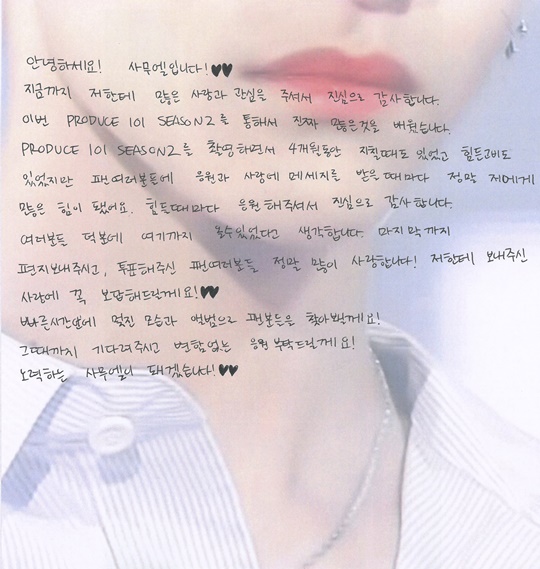 안녕하세요! 사무엘입니다!♥♥
지금까지 저한테 많은 사랑과 관심을 주셔서 진심으로 감사합니다.
이번 PRODUCE 101 SEASON2를 통해서 진짜 많은것을 배웠습니다.
PRODUCE 101 SEASON2를 촬영하면서 4개월동안 지칠때도 있었고 힘든고비도
있었지만 팬여러분들에 응원과 사랑에 메세지를 받을때마다 정말 저에게
많은 힘이 됐어요. 힘들때마다 응원해주셔서 진심으로 감사합니다.
여러분들 덕분에 여기까지 올수있었다고 생각합니다. 마지막까지
편지보내주시고, 투표해주신 팬여러분들 정말 많이 사랑합니다! 저한테 보내주신
사랑에 꼭 보답해드릴께요!♥
빠른시간안에 멋진 모습과 앨범으로 팬분들을 찾아뵐게요!
그때까지 기다려주시고 변함없는 응원 부탁드릴게요!
노력하는 사무엘이 돼겠습니다!♥♥